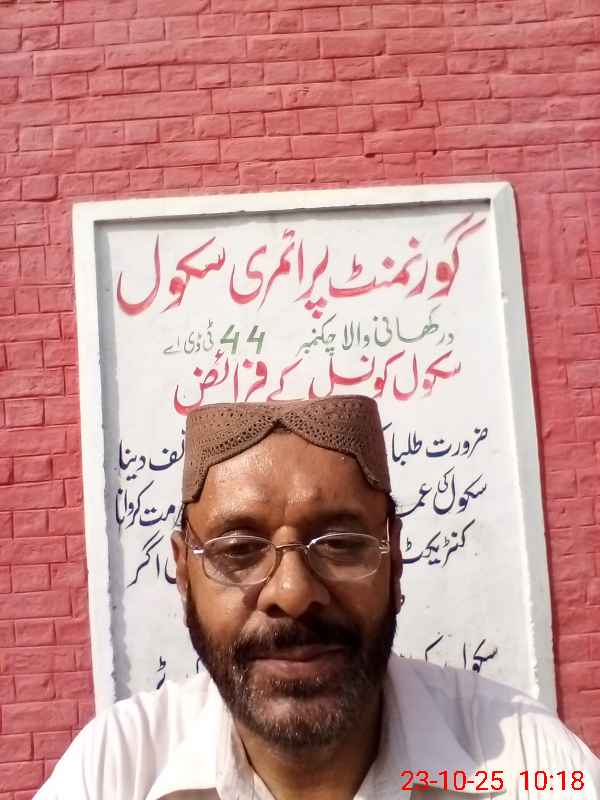 گورنمنٹ پرائمری سکول
درکھانی والا چکنمبر 44 ٹی ڈی اے
سکول کونسل کے فرائض
ضرورت طلبا
ف دینا
سکول کی عم
مت کروانا
کنٹریکٹ
اگر
سکول
23-10-25 10:18